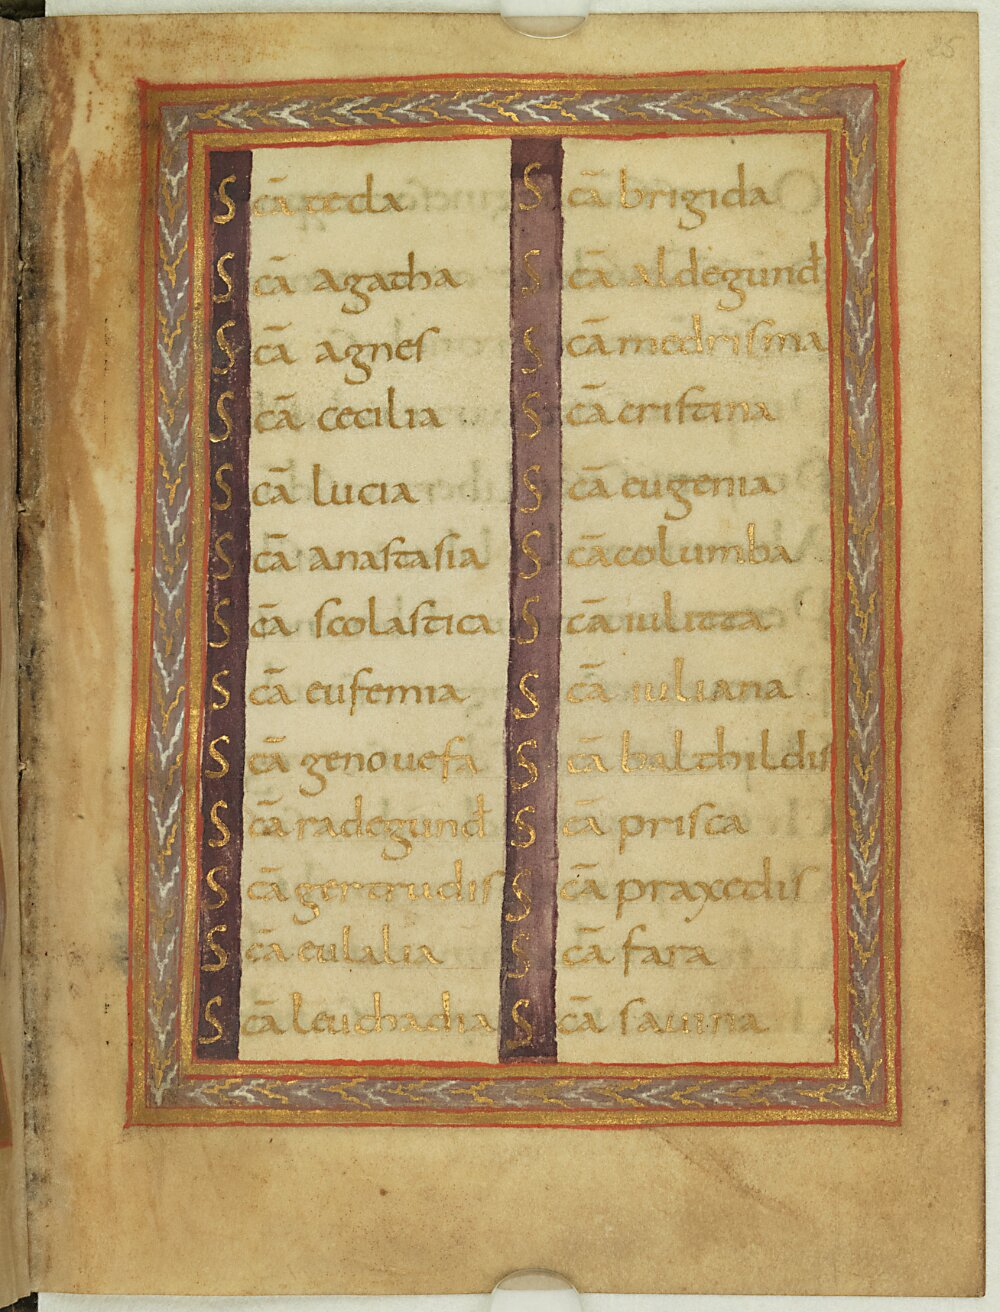 Scā tecla
Scā agatha
Scā agnes
Scā cecilia
Scā lucia
Scā anastasia
Scā scolastica
Scā eufemia
Scā genouefa
Scā radegund
Scā gertrudis
Scā eulalia
Scā leuchadia
Scā brigida
Scā aldegund
Scā medrisma
Scā cristina
Scā eugenia
Scā columba
Scā iulitta
Scā iuliana
Scā balthildis
Scā prisca
Scā praxedis
Scā fara
Scā sauina
25